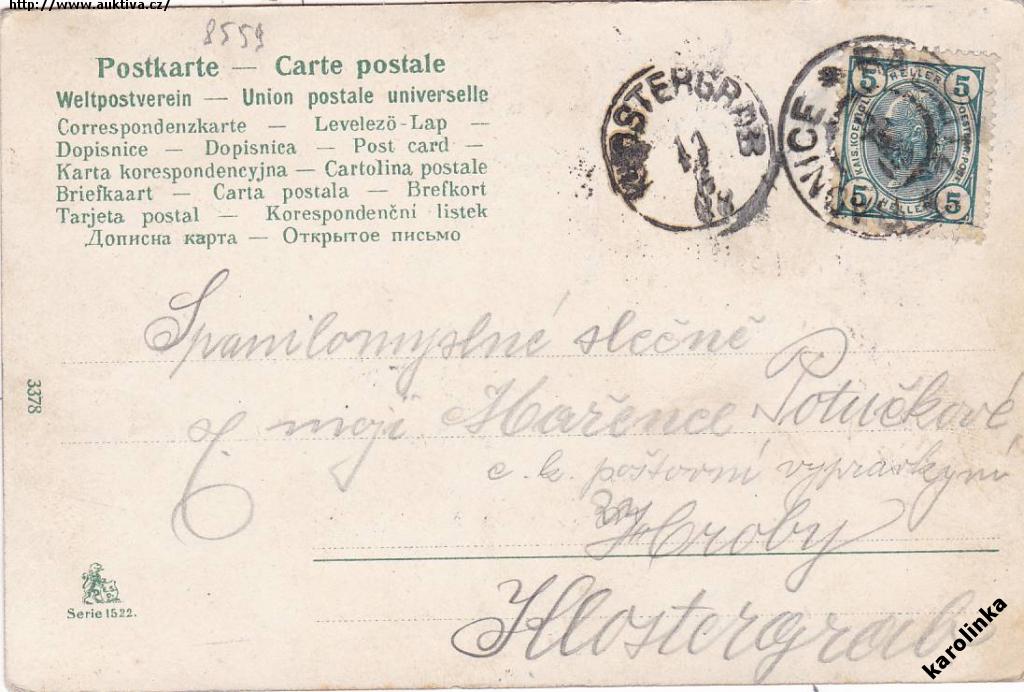 http://www.auktiva.cz/
8559
Postkarte — Carte postale
Weltpostverein — Union postale universelle
Correspondenzkarte — Levelező-Lap —
Dopisnice — Dopisnica — Post card —
Karta korespondencyjna — Cartolina postale
Briefkaart — Carta postala — Brefkort
Tarjeta postal — Korespondenční listek
Дописна карта — Открытое письмо
KLOSTERGRAB
5 HELLER 5
KAIS. KOENIGL. OESTERR. POST
5 HELLER 5
Spanilomyslné slečně
moji Mařence Potučkové
c. k. poštovní
Hroby
Klostergrab
3378
Serie 1522.
karolinka